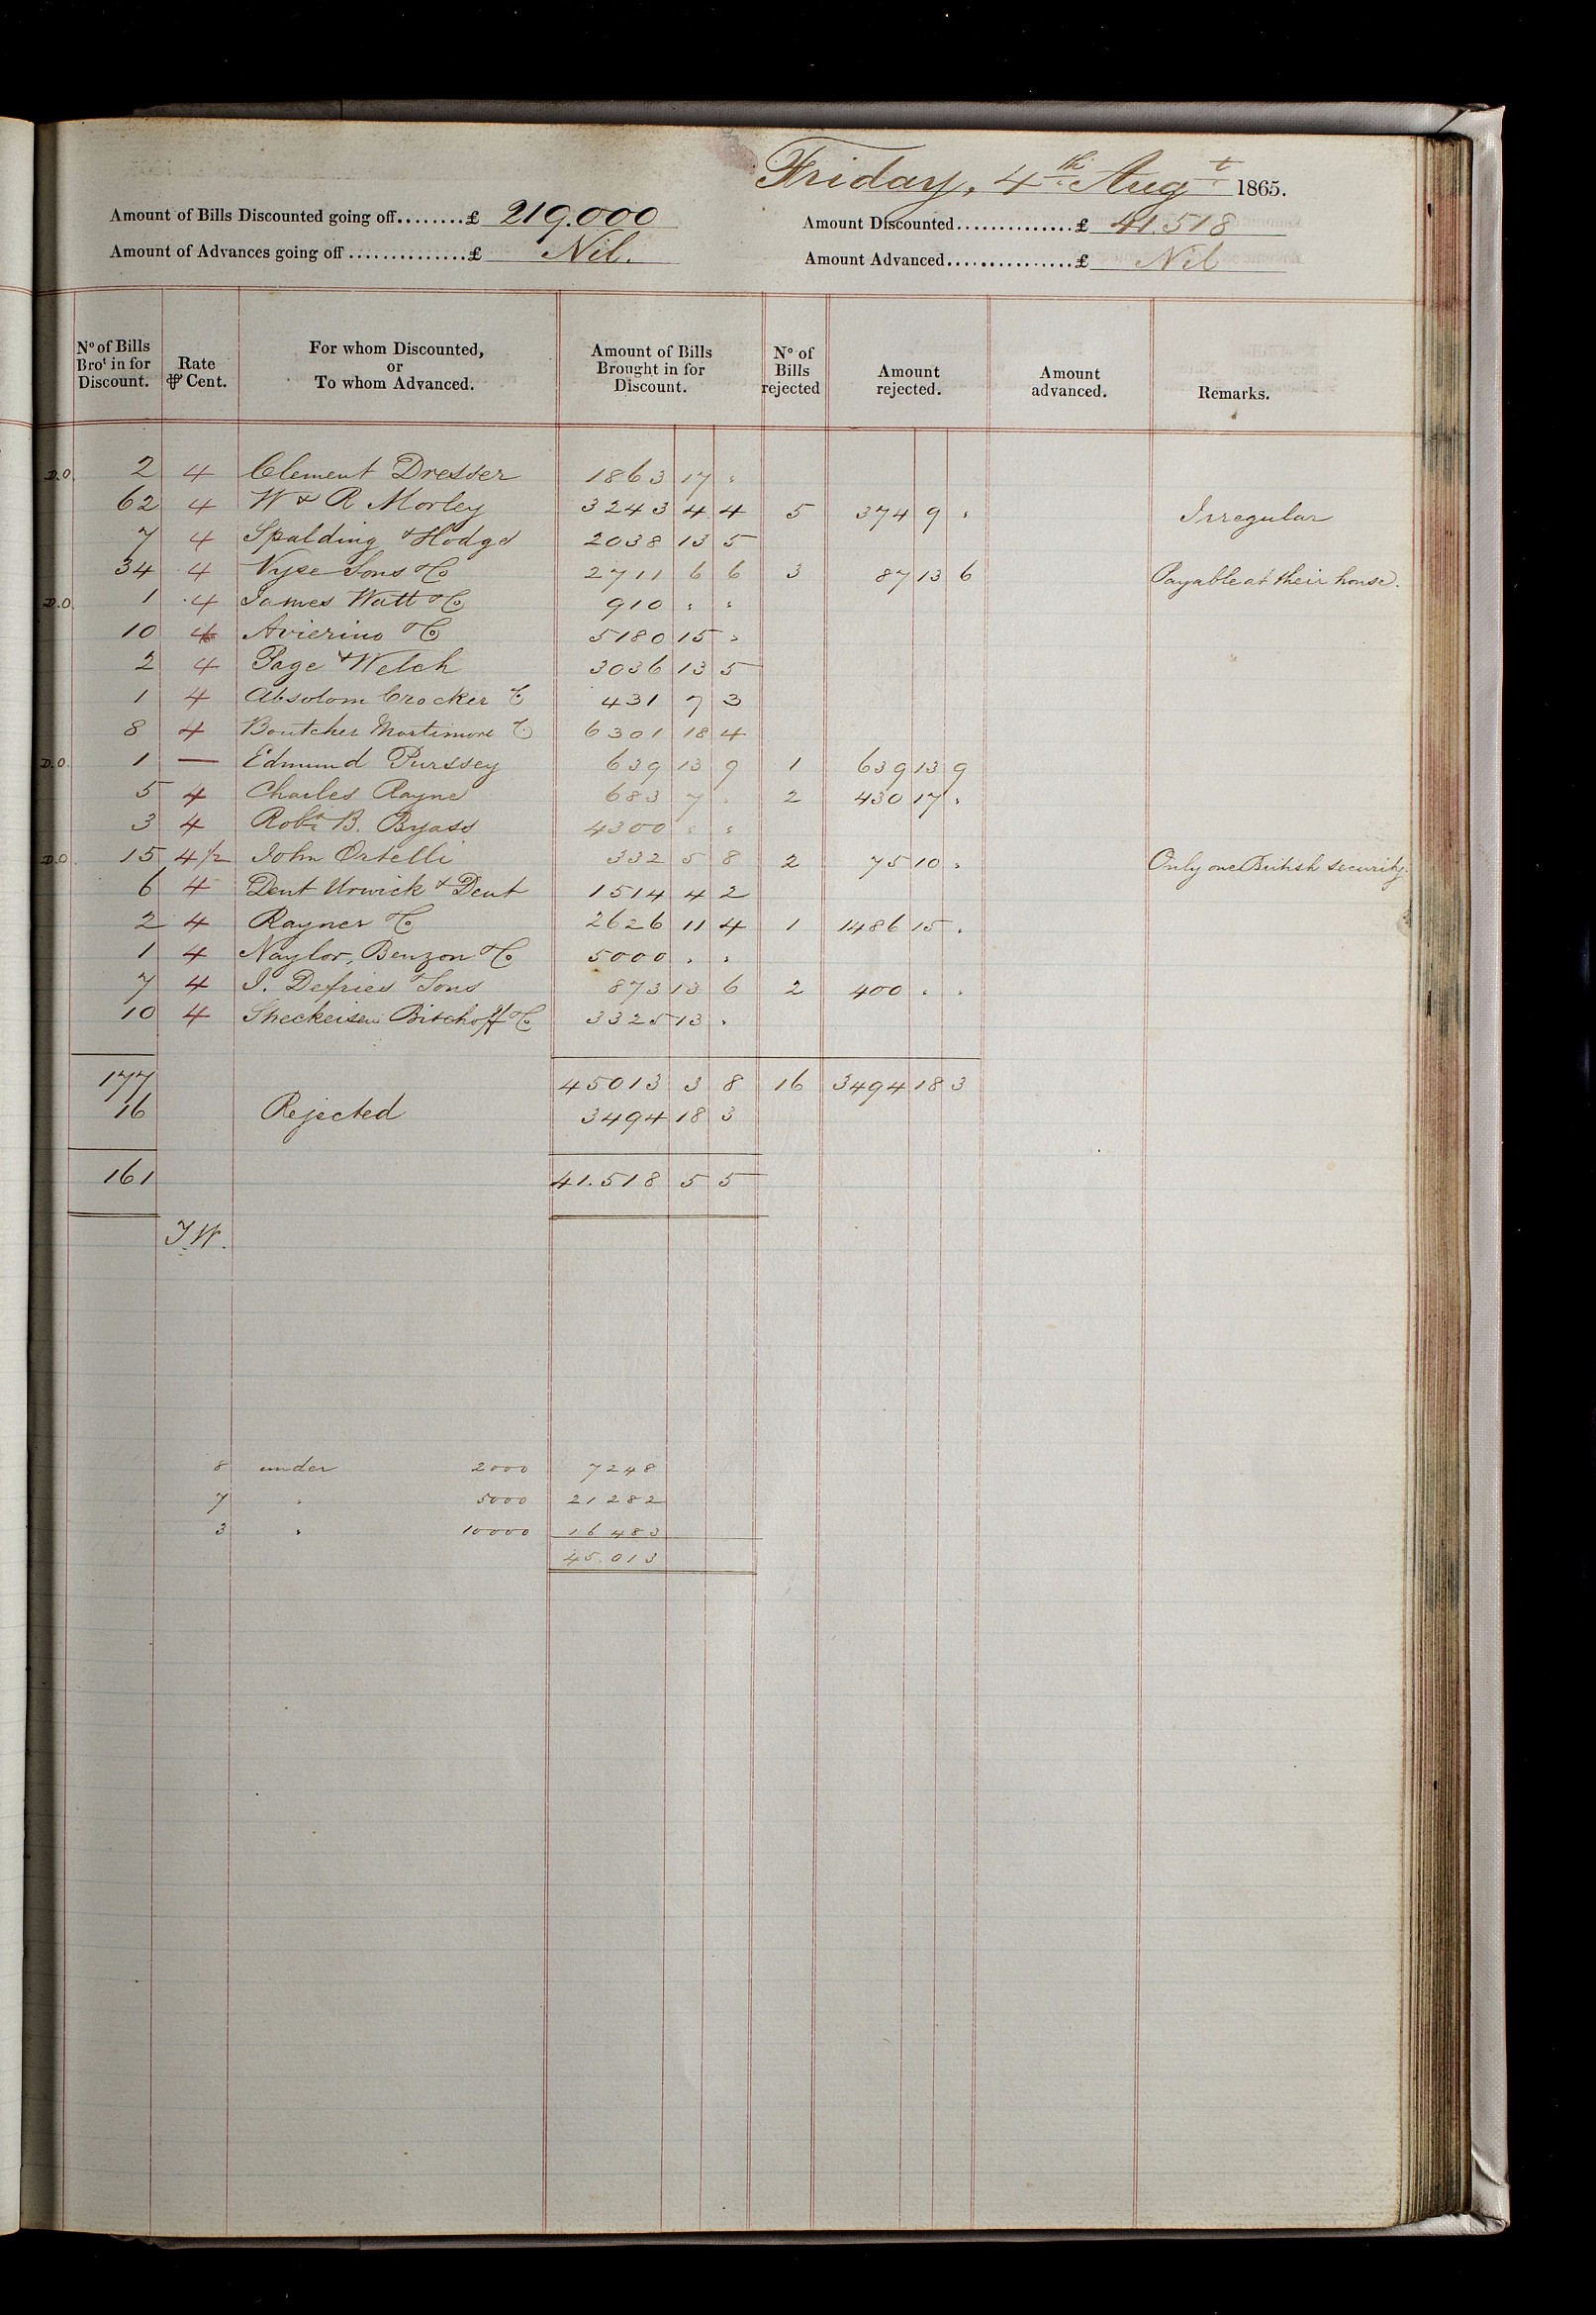 Friday, 4th Augt 1865.
Amount of Bills Discounted going off........£ 219.000
Amount Discounted..............£ 41.518
Amount of Advances going off..............£ Nil.
Amount Advanced...............£ Nil
No of Bills Brot in for Discount. Rate ⅌ Cent. For whom Discounted, or To whom Advanced. Amount of Bills Brought in for Discount. No of Bills rejected Amount rejected. Amount advanced. Remarks.
D.O. 2 4 Clement Dresser 1863 17 "
62 4 W & R Morley 3243 4 4 5 374 9 " Irregular
7 4 Spalding & Hodge 2038 13 5
34 4 Vyse Sons & Co 2711 6 6 3 87 13 6 Payable at their house.
D.O. 1 4 James Watt & Co 910 " "
10 4 Avierino & Co 5180 15 "
2 4 Page & Welch 3036 13 5
1 4 Absolom Crocker & Co 431 7 3
8 4 Boutcher Mortimore & Co 6301 18 4
D.O. 1 — Edmund Purssey 639 13 9 1 639 13 9
5 4 Charles Rayne 683 7 " 2 430 17 "
3 4 Robt B. Byass 4300 " "
D.O. 15 4½ John Ortelli 332 5 8 2 75 10 " Only one British security.
6 4 Dent Urwick & Dent 1514 4 2
2 4 Rayner & Co 2626 11 4 1 1486 15 "
1 4 Naylor, Benzon & Co 5000 " "
7 4 J. Defries & Sons 873 13 6 2 400 " "
10 4 Bischoff & Co 3325 13 "
177 45013 3 8 16 3494 18 3
16 Rejected 3494 18 3
161 41.518 5 5
8 under 2000 7248
7 " 5000 21282
3 " 10000 16483
45.013